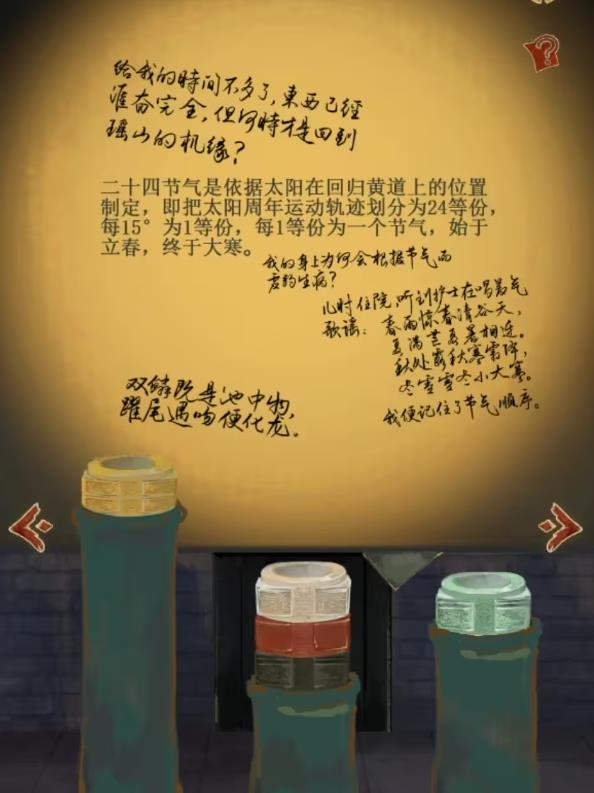 给我的時间不多了，東西已經
准备完全，但何時才是回到
瑶山的机缘？
二十四节气是依据太阳在回归黄道上的位置
制定，即把太阳周年运动轨迹划分为24等份，
每15°为1等份，每1等份为一个节气，始于
立春，终于大寒。
我的身上为何会根据节气而
产生病？
儿时住院，听到护士在唱节气
歌谣：春雨惊春清谷天，
夏满芒夏暑相连。
秋处露秋寒霜降，
冬雪雪冬小大寒。
我便记住了节气顺序。
双鳞既是池中物，
躍尾遇吻便化龙。
?